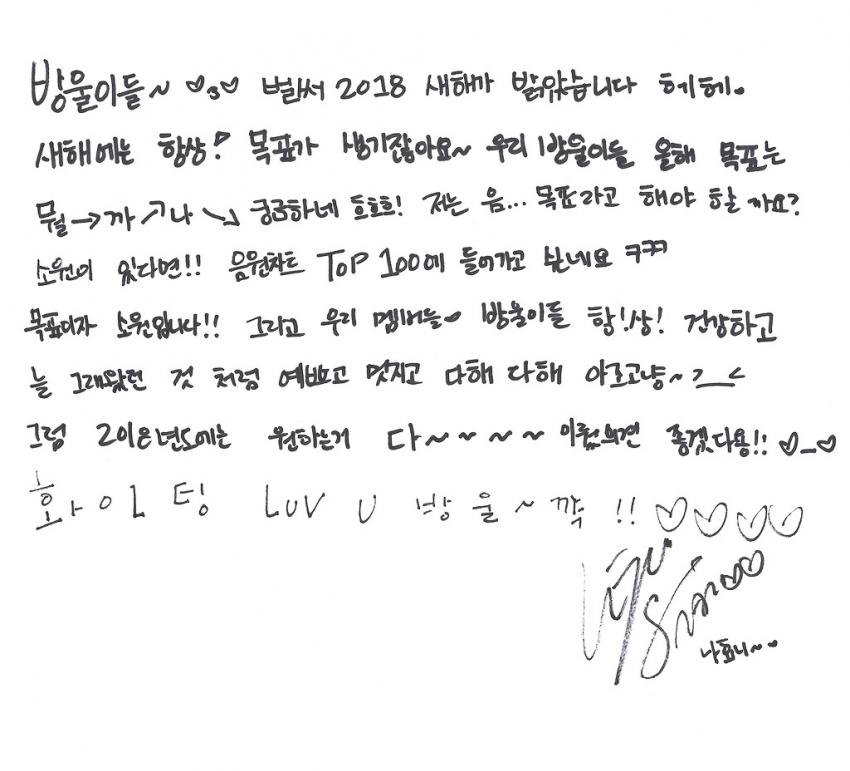 방울이들~ ♡3♡ 벌써 2018 새해가 밝았습니다 헤헤.
새해에는 항상! 목표가 생기잖아요~ 우리 방울이들 올해 목표는
뭘→까↗나↘ 궁금하네 호호호! 저는 음... 목표라고 해야 할까요?
소원이 있다면!! 음원차트 TOP 100에 들어가고 싶네요 ㅋㅋㅋ
목표이자 소원입니다!! 그리고 우리 멤버들♡ 방울이들 항!상! 건강하고
늘 그래왔던 것 처럼 예쁘고 멋지고 다해 다해 아르고냥~ㄱ_ㄴ
그럼 2018년도에는 원하는거 다~~~~ 이뤘으면 좋겠다용!! ♡_♡
화이팅 LUV U 방울~ 깍!! ♡♡♡♡
나효니~♡